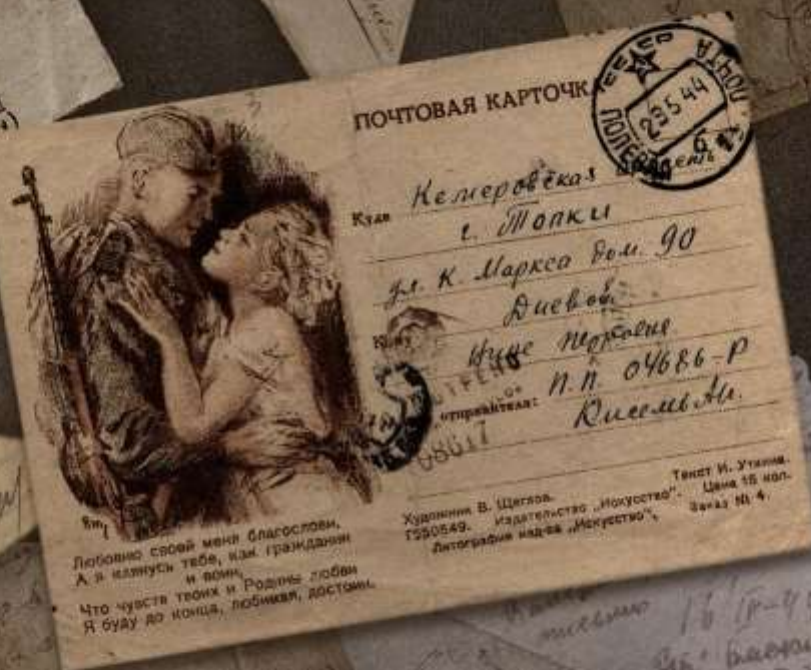 ПОЧТОВАЯ КАРТОЧК
СССР
ПОЧТА
29 5 44
б
Куда Кемеровская
г. Топки
ул. К. Маркса дом. 90
Кому
Нине Петровне
отправителя: П.П. 04686-Р
08617
Любовью своей меня благослови,
А я клянусь тебе, как гражданин
и воин,
Что чувств твоих и Родины любви
Я буду до конца, любимая, достоин.
Художник В. Щеглов. Текст И. Уткина.
Г550549. Издательство „Искусство". Цена 15 коп.
Литография изд-ва „Искусство". Заказ № 4.
письмо